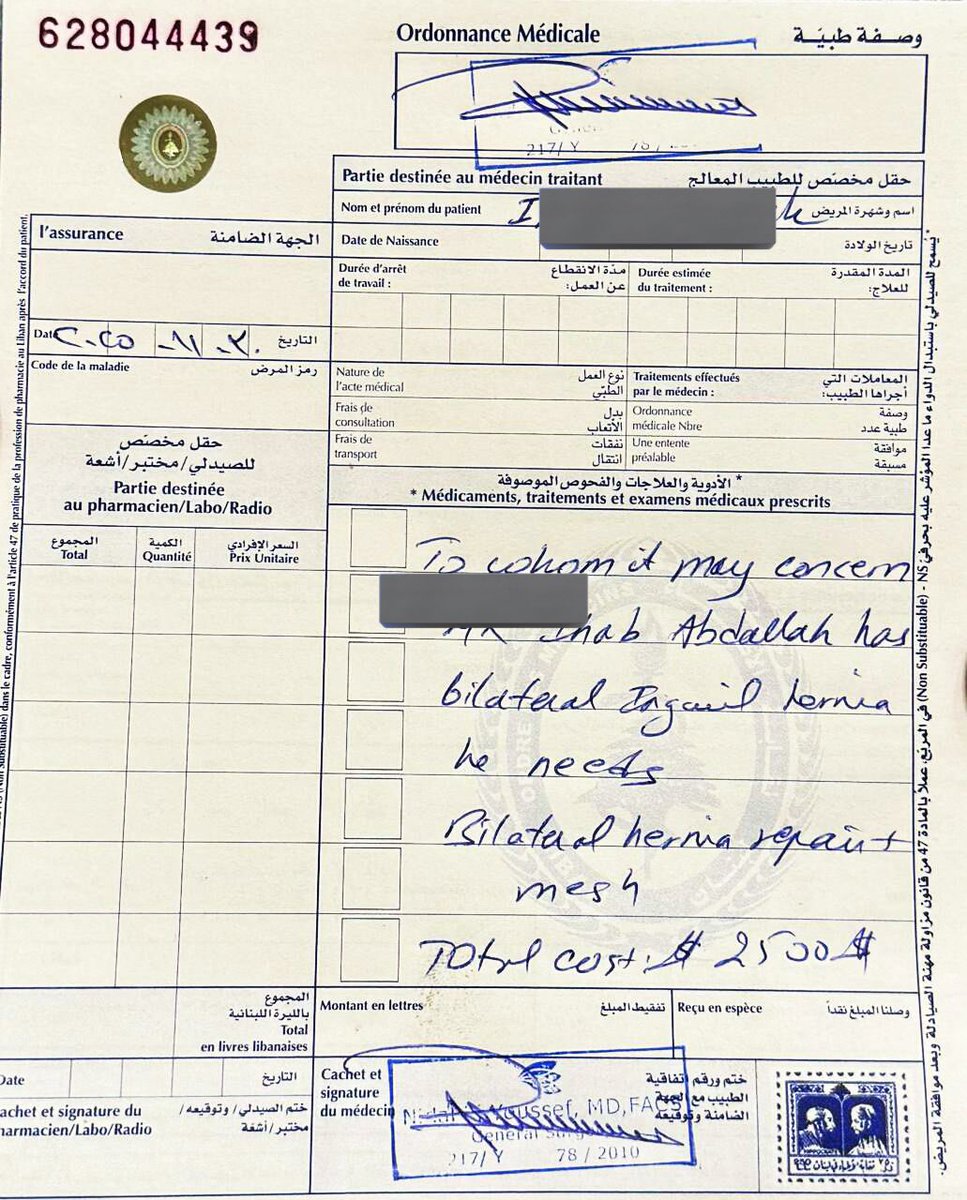 628044439
Ordonnance Médicale
وصفة طبيّة
217/Y 78/
Partie destinée au médecin traitant
حقل مخصّص للطبيب المعالج
Nom et prénom du patient
اسم وشهرة المريض
l'assurance
الجهة الضامنة
Date de Naissance
تاريخ الولادة
Durée d'arrêt
de travail :
مدّة الانقطاع
عن العمل:
Durée estimée
du traitement :
المدة المقدرة
للعلاج:
Date
التاريخ
Code de la maladie
رمز المرض
Nature de
l'acte médical
نوع العمل
الطبّي
Traitements effectués
par le médecin :
المعاملات التي
أجراها الطبيب:
Frais de
consultation
بدل
الأتعاب
Ordonnance
médicale Nbre
وصفة
طبية عدد
Frais de
transport
نفقات
انتقال
Une entente
préalable
موافقة
مسبقة
حقل مخصّص
للصيدلي/مختبر/أشعة
Partie destinée
au pharmacien/Labo/Radio
* الأدوية والعلاجات والفحوص الموصوفة
* Médicaments, traitements et examens médicaux prescrits
المجموع
Total
الكمية
Quantité
السعر الإفرادي
Prix Unitaire
To whom it may concern
Abdallah has
bilateral hernia
he needs
Bilateral hernia repair +
mesh
Total cost: $ 2500 $
المجموع
بالليرة اللبنانية
Total
en livres libanaises
Montant en lettres
تفقيط المبلغ
Reçu en espèce
وصلنا المبلغ نقداً
Date
التاريخ
Cachet et
signature
du médecin
ختم ورقم إتفاقية
الطبيب مع الجهة
الضامنة وتوقيعه
Youssef, MD, FACS
General
217/Y 78 / 2010
cachet et signature du
pharmacien/Labo/Radio
ختم الصيدلي/ وتوقيعه/
مختبر/أشعة
* يُسمح للصيدلي باستبدال الدواء ما عدا المؤشر عليه بحرفي NS - (Non Substituable) في المربّع، عملاً بالمادة 47 من قانون مزاولة مهنة الصيادلة وبعد موافقة المريض.
(Non Substituable) dans le cadre, conformément à l'article 47 de pratique de la profession de pharmacie au Liban après l'accord du patient.